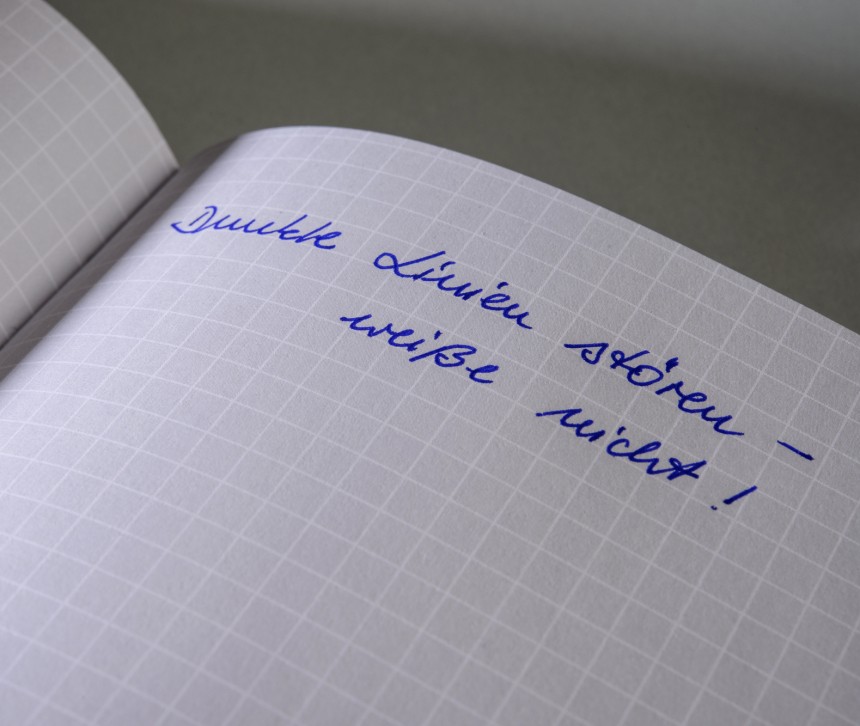 Dunkle Linien stören –
weiße nicht!